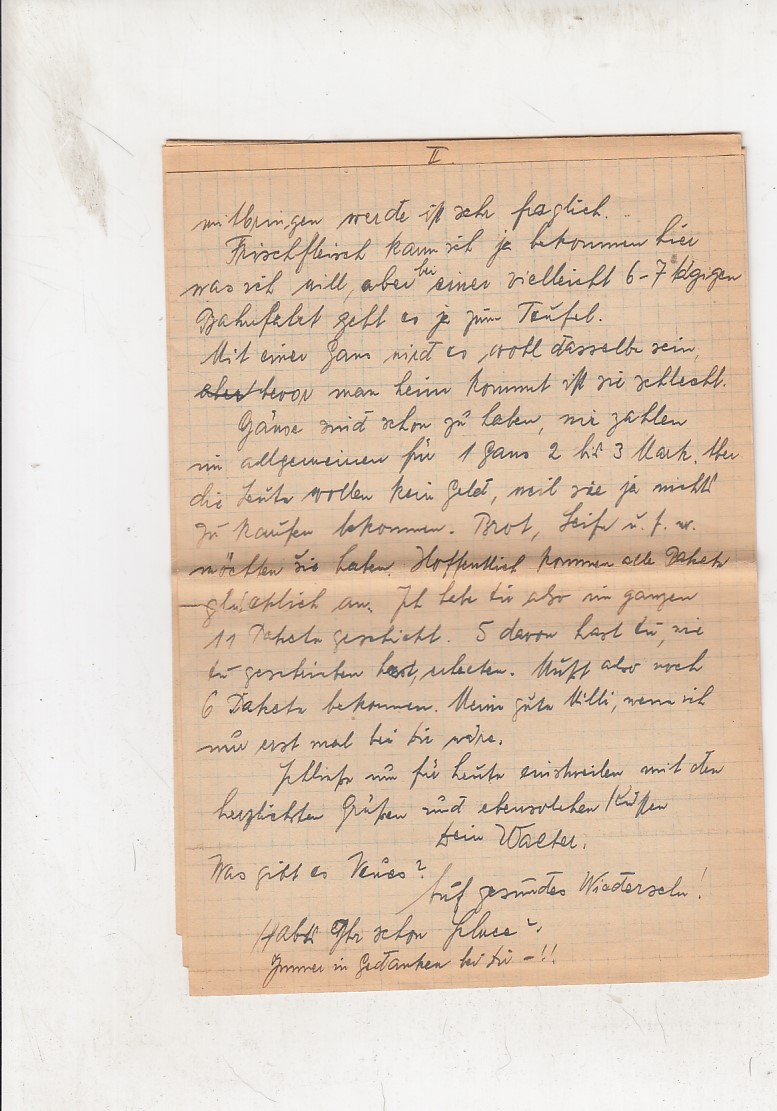 II.
mitbringen werde ist sehr fraglich.
Frischfleisch kann ich ja bekommen hier
was ich will, aber bei einer vielleicht 6-7 tägigen
Bahnfahrt geht es ja zum Teufel.
Mit einer Gans wird es wohl dasselbe sein,
aber bevor man heim kommt ist sie schlecht.
Gänse sind schon zu haben, wir zahlen
im allgemeinen für 1 Gans 2 bis 3 Mark. Aber
die Leute wollen kein Geld, weil sie ja nichts
zu kaufen bekommen. Brot, Seife u.s.w.
möchten sie haben. Hoffentlich kommen alle Pakete
glücklich an. Ich habe dir also im ganzen
11 Pakete geschickt. 5 davon hast du, wie
du geschrieben hast, erhalten. Mußt also noch
6 Pakete bekommen. Meine gute Milli, wenn ich
nur erst mal bei dir wäre.
Schließe nun für heute einstweilen mit den
herzlichsten Grüßen und ebensolchen Küßen
Dein Walter.
Was gibt es Neues?
Auf gesundes Wiedersehn!
Habt Ihr schon Schnee?
Immer in Gedanken bei dir -!!